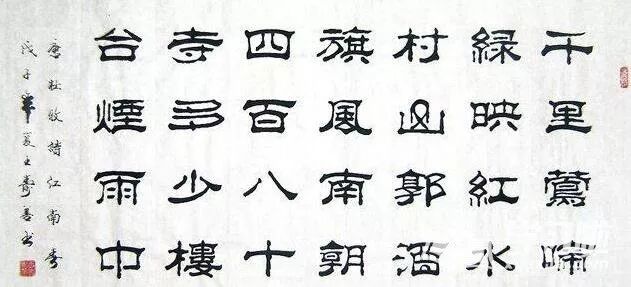 千里鶯啼
緑映紅水
村山郭酒
旗風南朝
四百八十
寺多少樓
台煙雨中
唐杜牧詩江南春
戊子年夏書